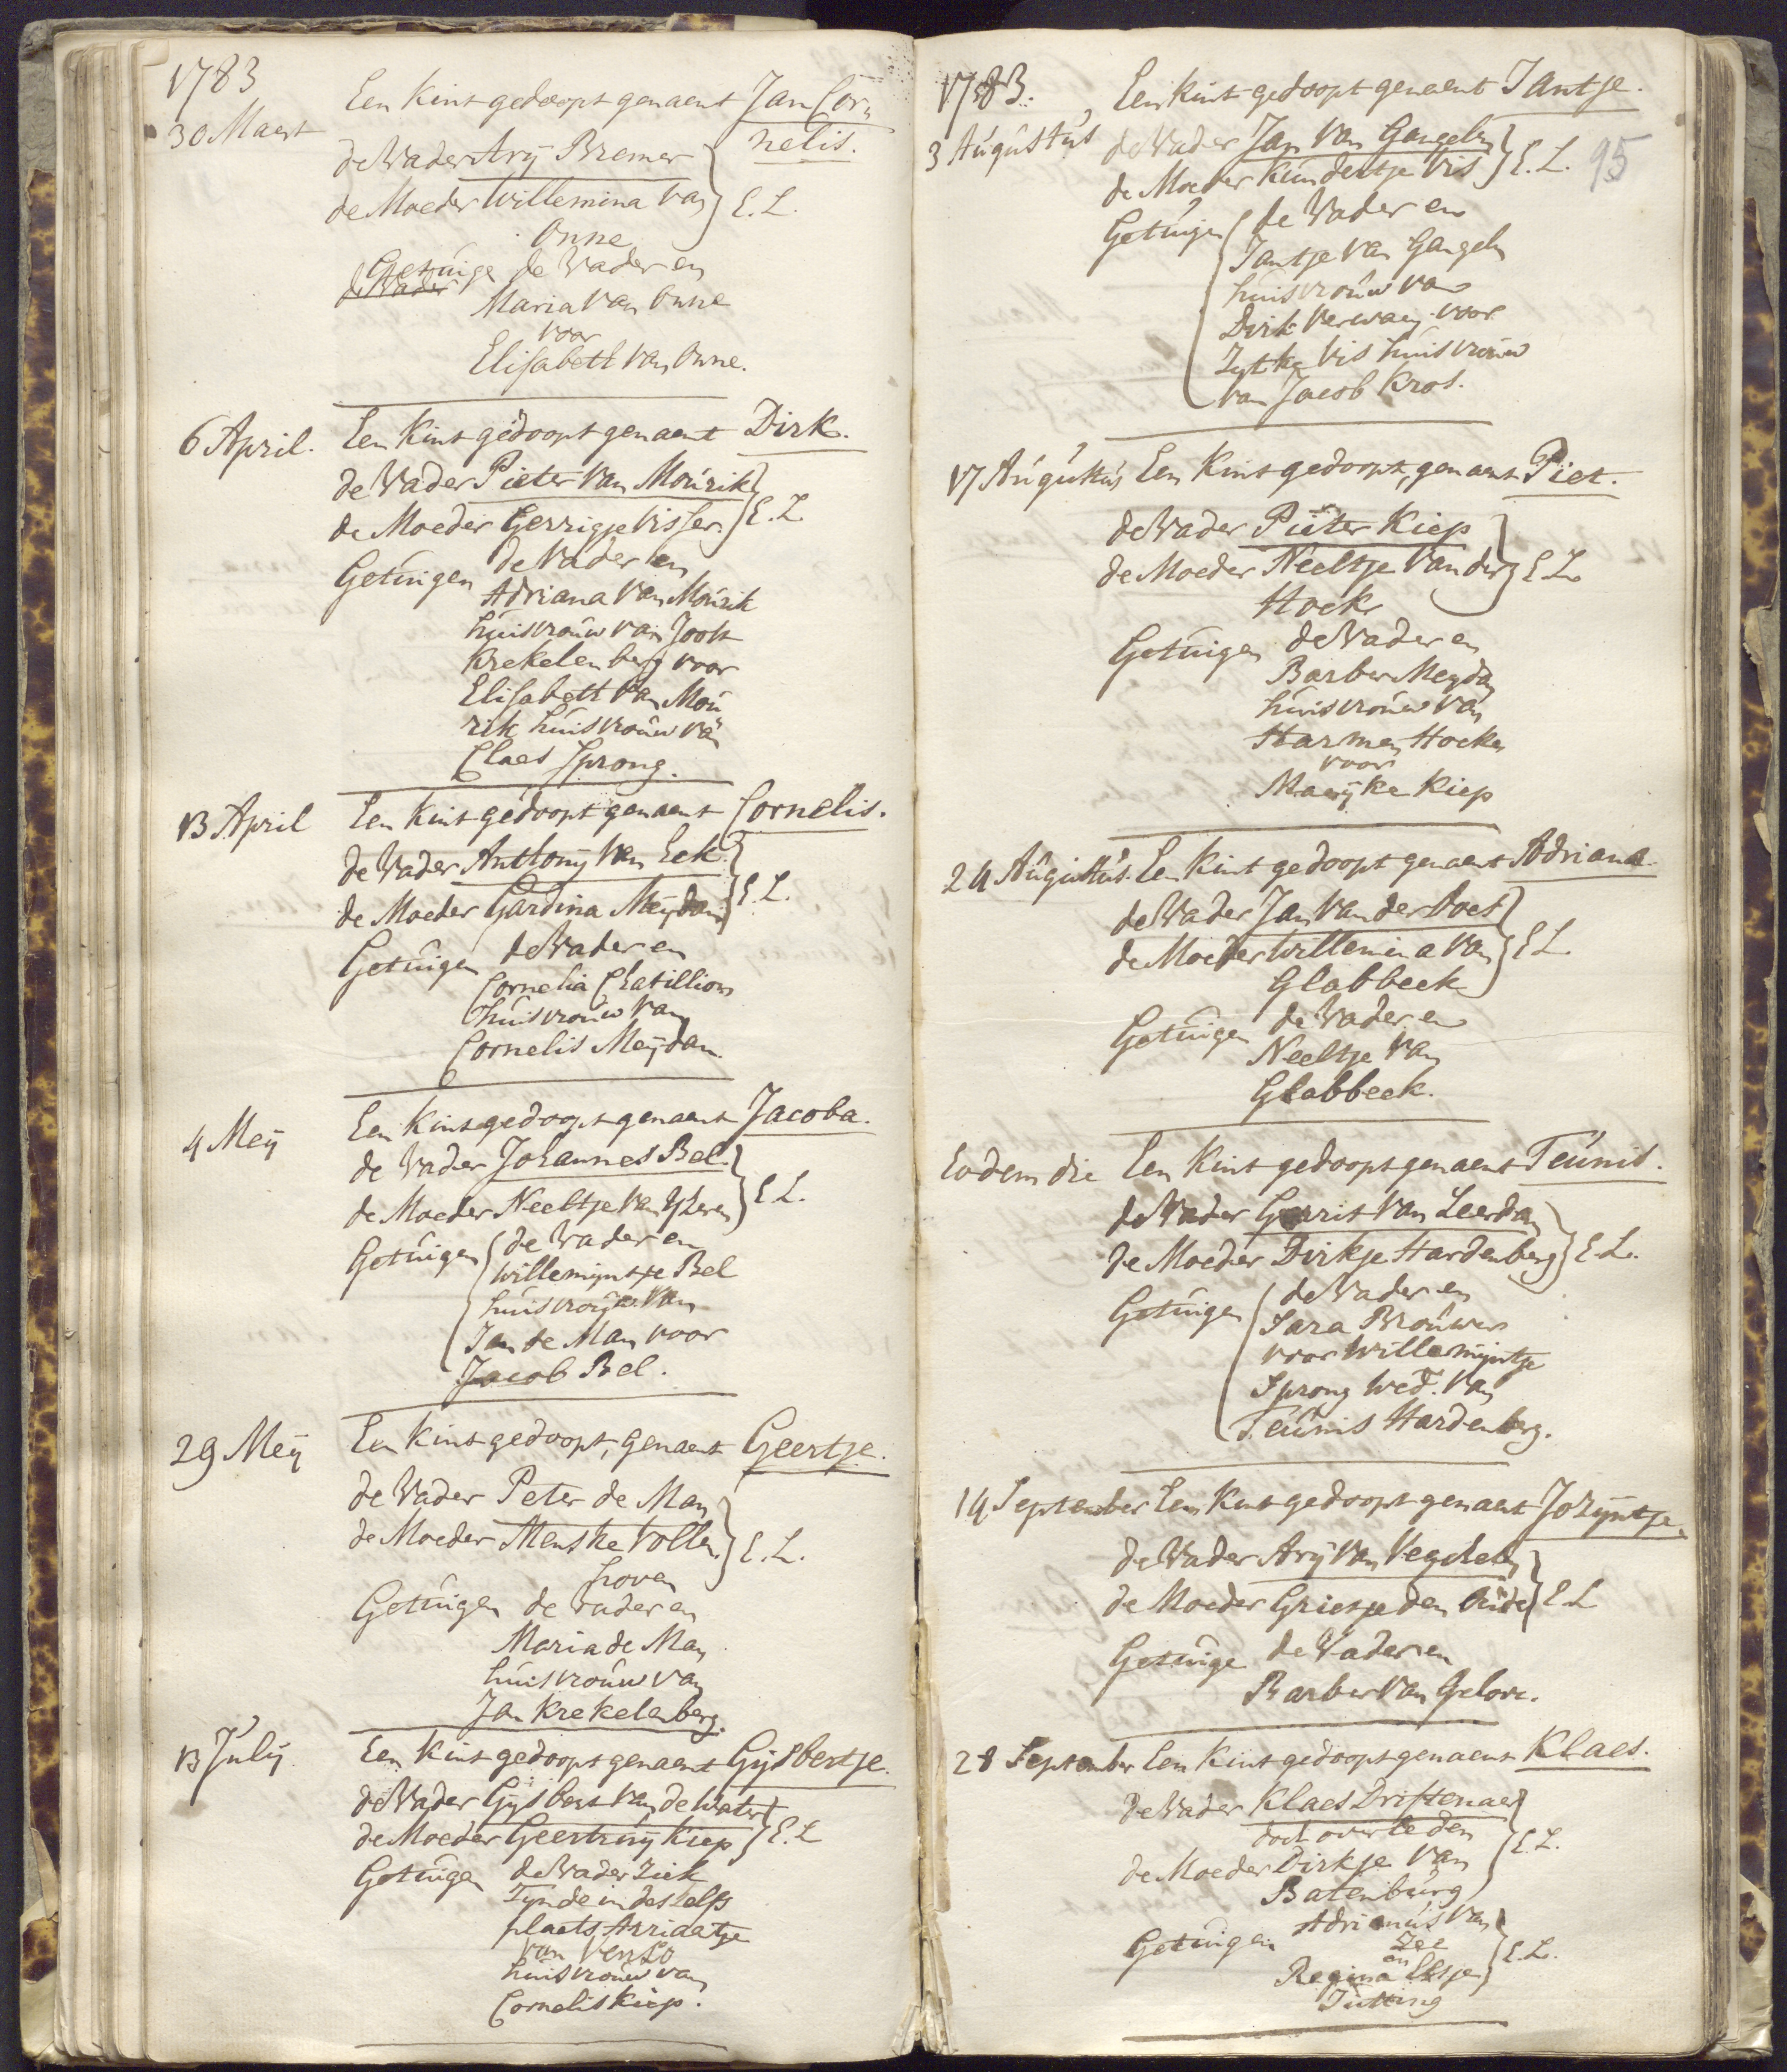 1783
30 Maert
Een kint gedoopt genaemt Jan Cor=
nelis.
de Vader Arij Bremer
de Moeder Willemina van
Onne
E. L.
Getuige de Vader en
de Vader
Maria van Onne
voor
Elisabett van Onne.
6 April. Een kint gedoopt genaemt Dirk.
de Vader Pieter van Mourik
de Moeder Gerrigje Visser. E. L.
Getuigen de Vader en
Adriana van Mourik
huisvrouw van Joost
Krekelenberg voor
Elisabett van Mou
rik huisvrouw van
Claes Sprong.
13 April Een kint gedoopt genaemt Cornelis.
de Vader Anthonij van Eck.
de Moeder Gardina Meijdam E. L.
Getuigen de Vader en
Cornelia Chatillion
huisvrouw van
Cornelis Meijdam.
4 Meij Een kint gedoopt genaemt Jacoba.
de Vader Johannes Bel.
de Moeder Neeltje van IJseren E L.
Getuigen de Vader en
Willemijntje Bel
huisvrouw van
Jan de Man voor
Jacob Bel.
29 Meij Een kint gedoopt, genaemt Geertje.
de Vader Peter de Man
de Moeder Menske Vollen
hoven
E. L.
Getuigen de Vader en
Maria de Man
huisvrouw van
Jan Krekelenberg.
13 Julij Een kint gedoopt genaemt Gijsbertje.
de Vader Gijsbert van de Water
de Moeder Geertruij Kiep E. L
Getuigen de Vader ziek
zynde in deszelfs
plaets Arriaetje
van Venlo
huisvrouw van
Cornelis Kiep.
1783. Een kint gedoopt genaemt Jantje.
3 Augustus de Vader Jan van Gangelen
de Moeder Kundertje Vis E. L. 95
Getuigen de Vader en
Jantje van Gangelen
huisvrouw van
Dirk Verweij voor
Zytke Vis huisvrouw
van Jacob Kros.
17 Augustus Een kint gedoopt, genaemt Piet.
de Vader Pieter Kiep
de Moeder Neeltje van der E L.
Hoek
Getuigen de Vader en
Barber Meydam
huisvrouw van
Harmen Hoeke
voor
Marijke Kiep
24 Augustus. Een kint gedoopt genaemt Adriana.
de Vader Jan van der Poel
de Moeder Willemina van E L.
Glabbeek
Getuigen de Vader en
Neeltje van
Glabbeek.
Eodem die Een kint gedoopt genaemt Teunis.
de Vader Gerrit van Leerdam
de Moeder Dirkje Hardenberg E. L.
Getuigen de Vader en
Sara Brouwer
voor Willemijntje
Sprong Wed. van
Teunis Hardenberg.
14 September Een kint gedoopt genaemt Jozijntje.
de Vader Arij van Veghelen
de Moeder Grietje den Oude E L
Getuige de Vader en
Barber van Gelove.
28 September Een kint gedoopt genaemt Klaes.
de Vader Klaes Driftenaer
doch overleden
de Moeder Dirkje van E. L.
Batenburg
Getuigen Adrianus van
Zee
en E. L.
Regina Elsje
Jutting